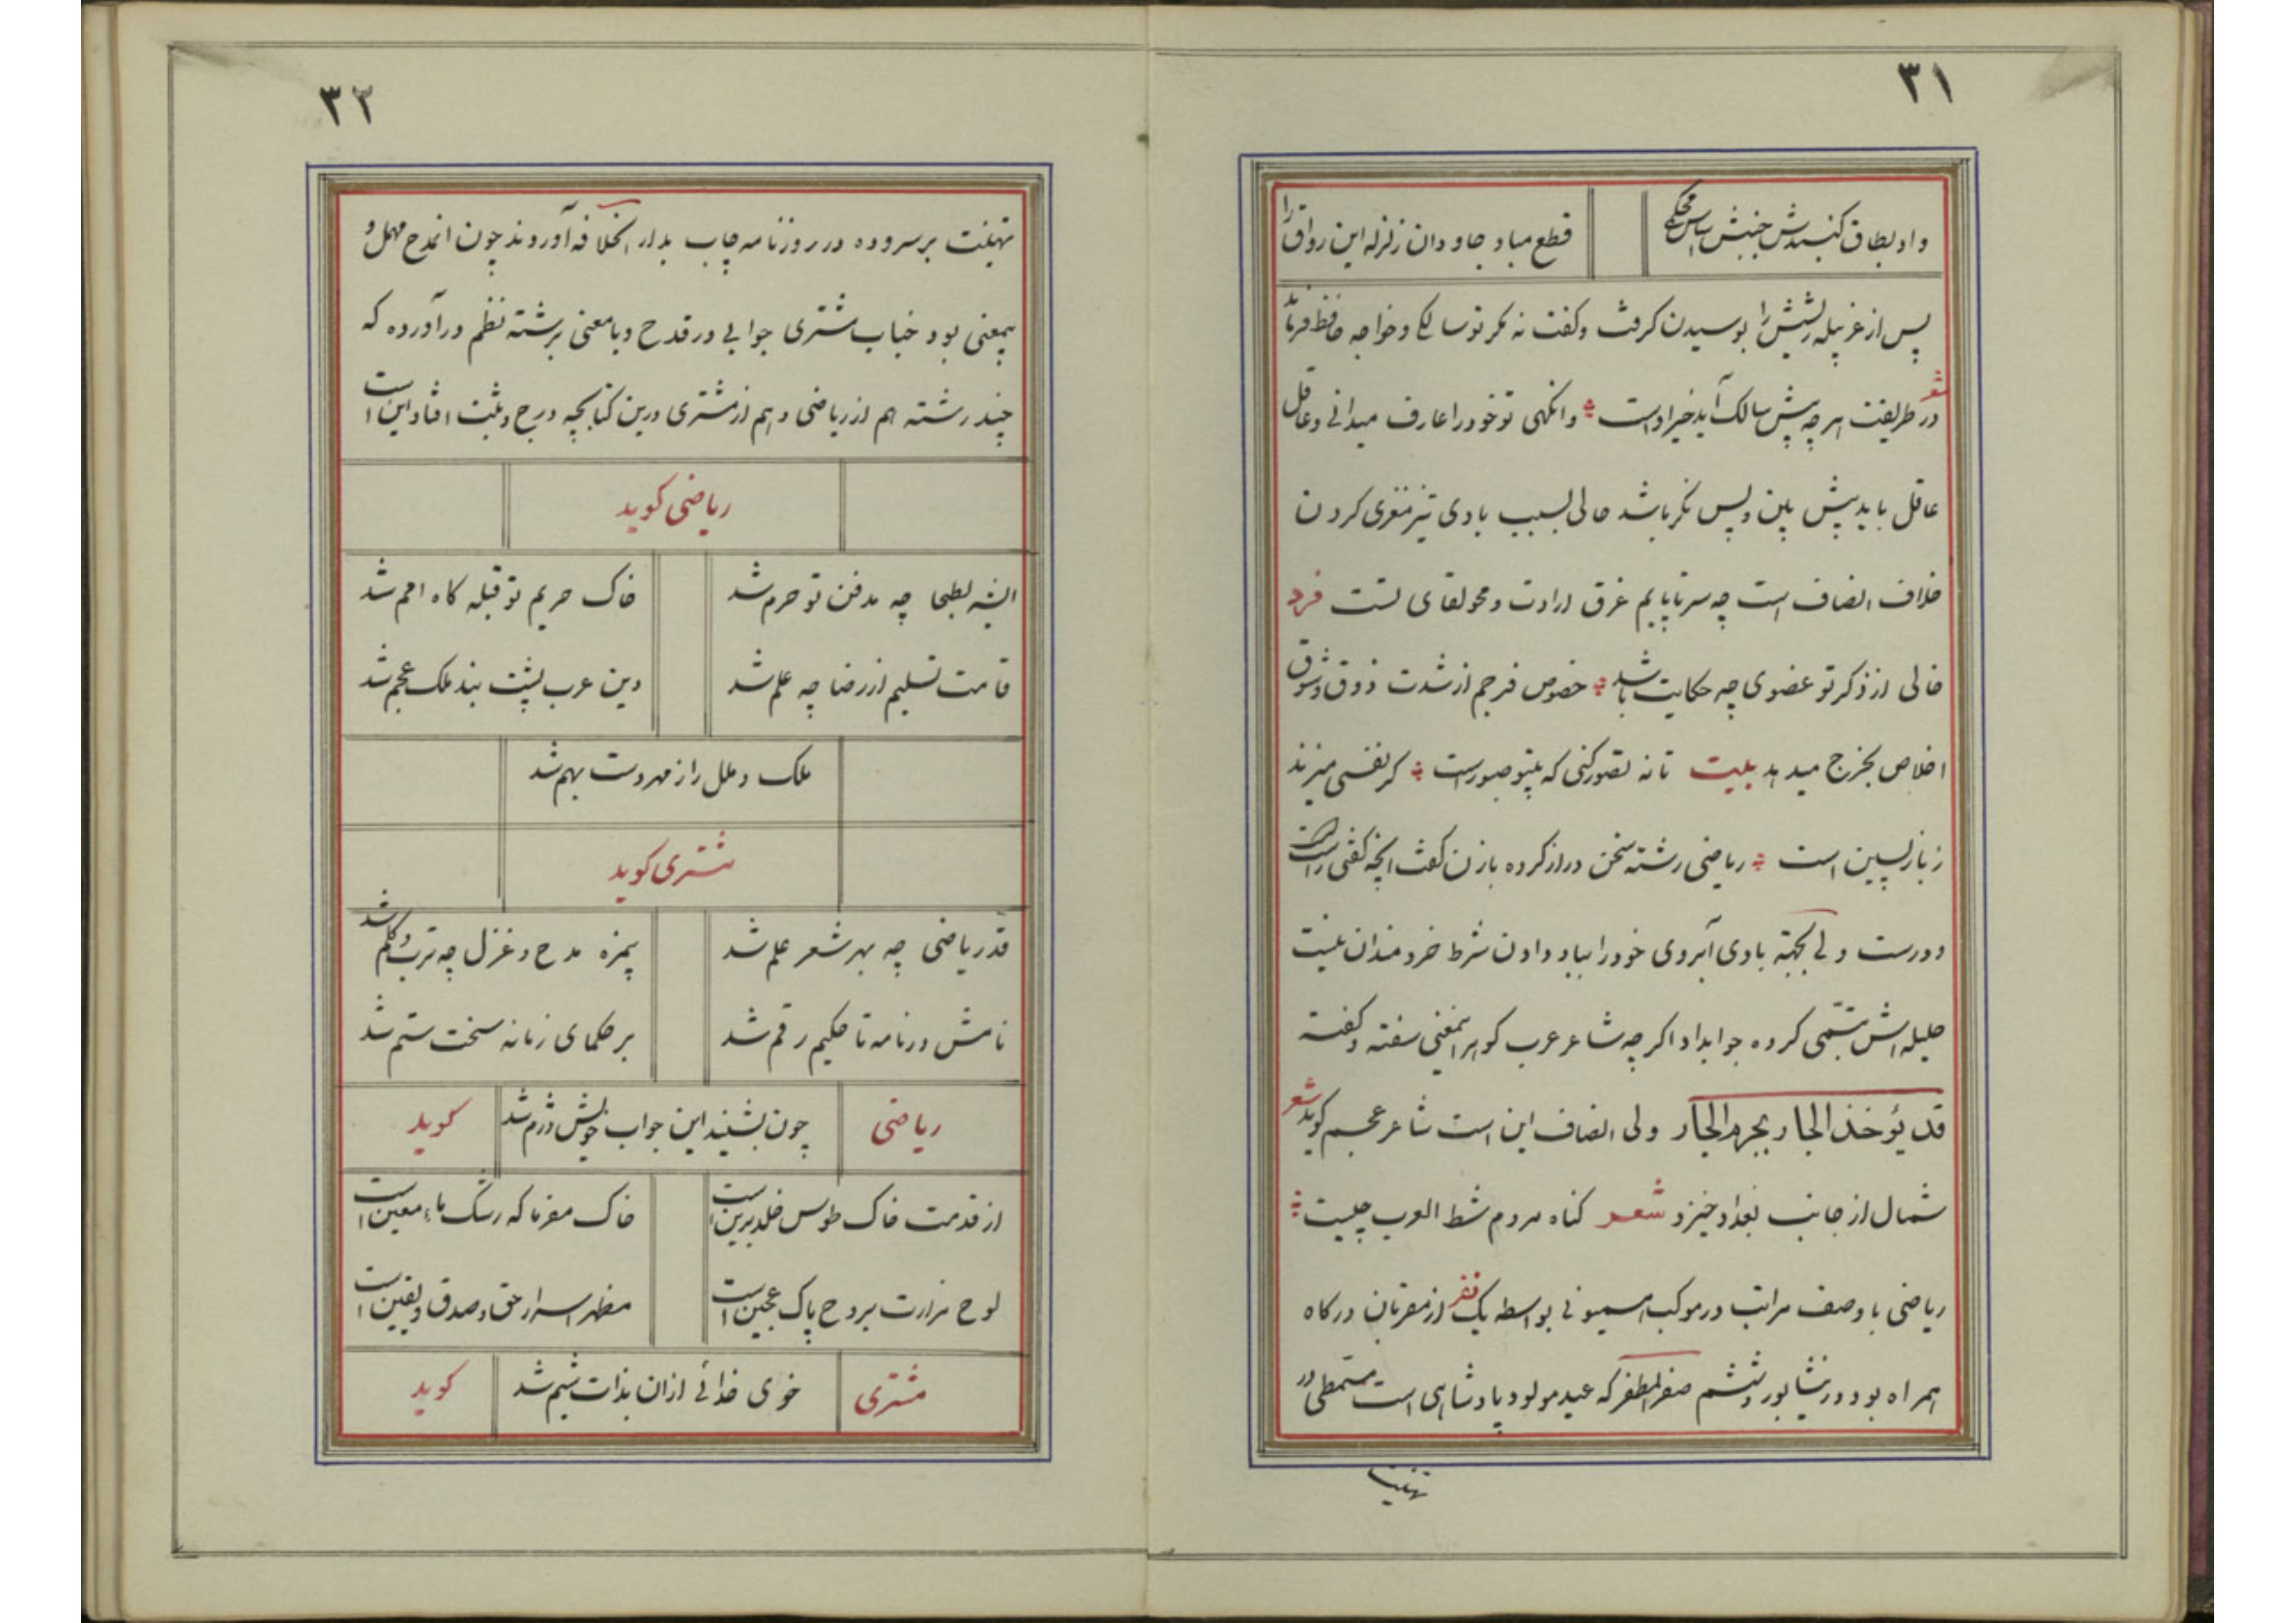 ۳۱
داد بطاق گنبدش جنبش اساس محکمی
قطع مباد جاودان زلزله این رواق را
پس از غربیله ریشش را بوسیدن گرفت و گفت نه مگر تو سالکی و خواجه حافظ فرماید
شعر
در طریقت هر چه پیش سالک آید خیر اوست ؞ وانگهی تو خود را عارف میدانی و عاقل
عاقل باید پیش بین و پس نگر باشد حالی بسبب بادی تیز مغزی کردن
خلاف انصاف است چه سر تا پایم غرق ارادت و محو لقای تست فرد
خالی از ذکر تو عضوی چه حکایت باشد ؞ خصوص فرجم از شدت ذوق و شوق
اخلاص بخرج میدهد بیت تا نه تصور کنی که بیتو صبورست ؞ گر نفسی میزند
ز بازپسین است ؞ ریاضی رشته سخن دراز کرده بازن گفت آنچه گفتی راست
و درست ولی بجهة بادی آبروی خود را بباد دادن شرط خردمندان نیست
حلیله اش تبسمی کرده جوابداد اگر چه شاعر عرب گوهر اینمعنی سفته و گفته
قد یؤخذ الجار بجرم الجار ولی انصاف این است شاعر عجم گوید شعر
شمال از جانب بغداد خیزد شعر گناه مردم شط العرب چیست ؞
ریاضی با وصف مراتب در موکب همیونی بواسطه یک نفر از مقربان درگاه
همراه بود در نیشابور و ششم صفر المظفر که عید مولود پادشاهی است مسمطی در
تهنیت
۳۲
تهنیت بر سروده در روزنامه چاپ بدار الخلافه آوردند چون آنمدح مهمل و
بیمعنی بود جناب مشتری جوابی در قدح و بامعنی برشته نظم در آورده که
چند رشته هم از ریاضی و هم از مشتری درین کتابچه درج و ثبت افتاد این است
ریاضی گوید
ایشه بطحا چه مدفن تو حرم شد
خاک حریم تو قبله گاه امم شد
قامت تسلیم از رضا چه علم شد
دین عرب پشت بند ملک عجم شد
ملک و ملل را ز مهر دست بهم شد
مشتری گوید
قد ریاضی چه بهر شعر علم شد
بیمزه مدح و غزل چه ترب و کلم شد
نامش در نامه تا حکیم رقم شد
بر حکمای زمانه سخت ستم شد
ریاضی
چون بشنید این جواب خویش دژم شد
گوید
از قدمت خاک طوس خلد برین است
خاک مفرما که رشک ماء معین است
لوح مزارت بروح پاک عجین است
مظهر اسرار حق و صدق و یقین است
مشتری
خوی خدائی ازان بذات شیم شد
گوید